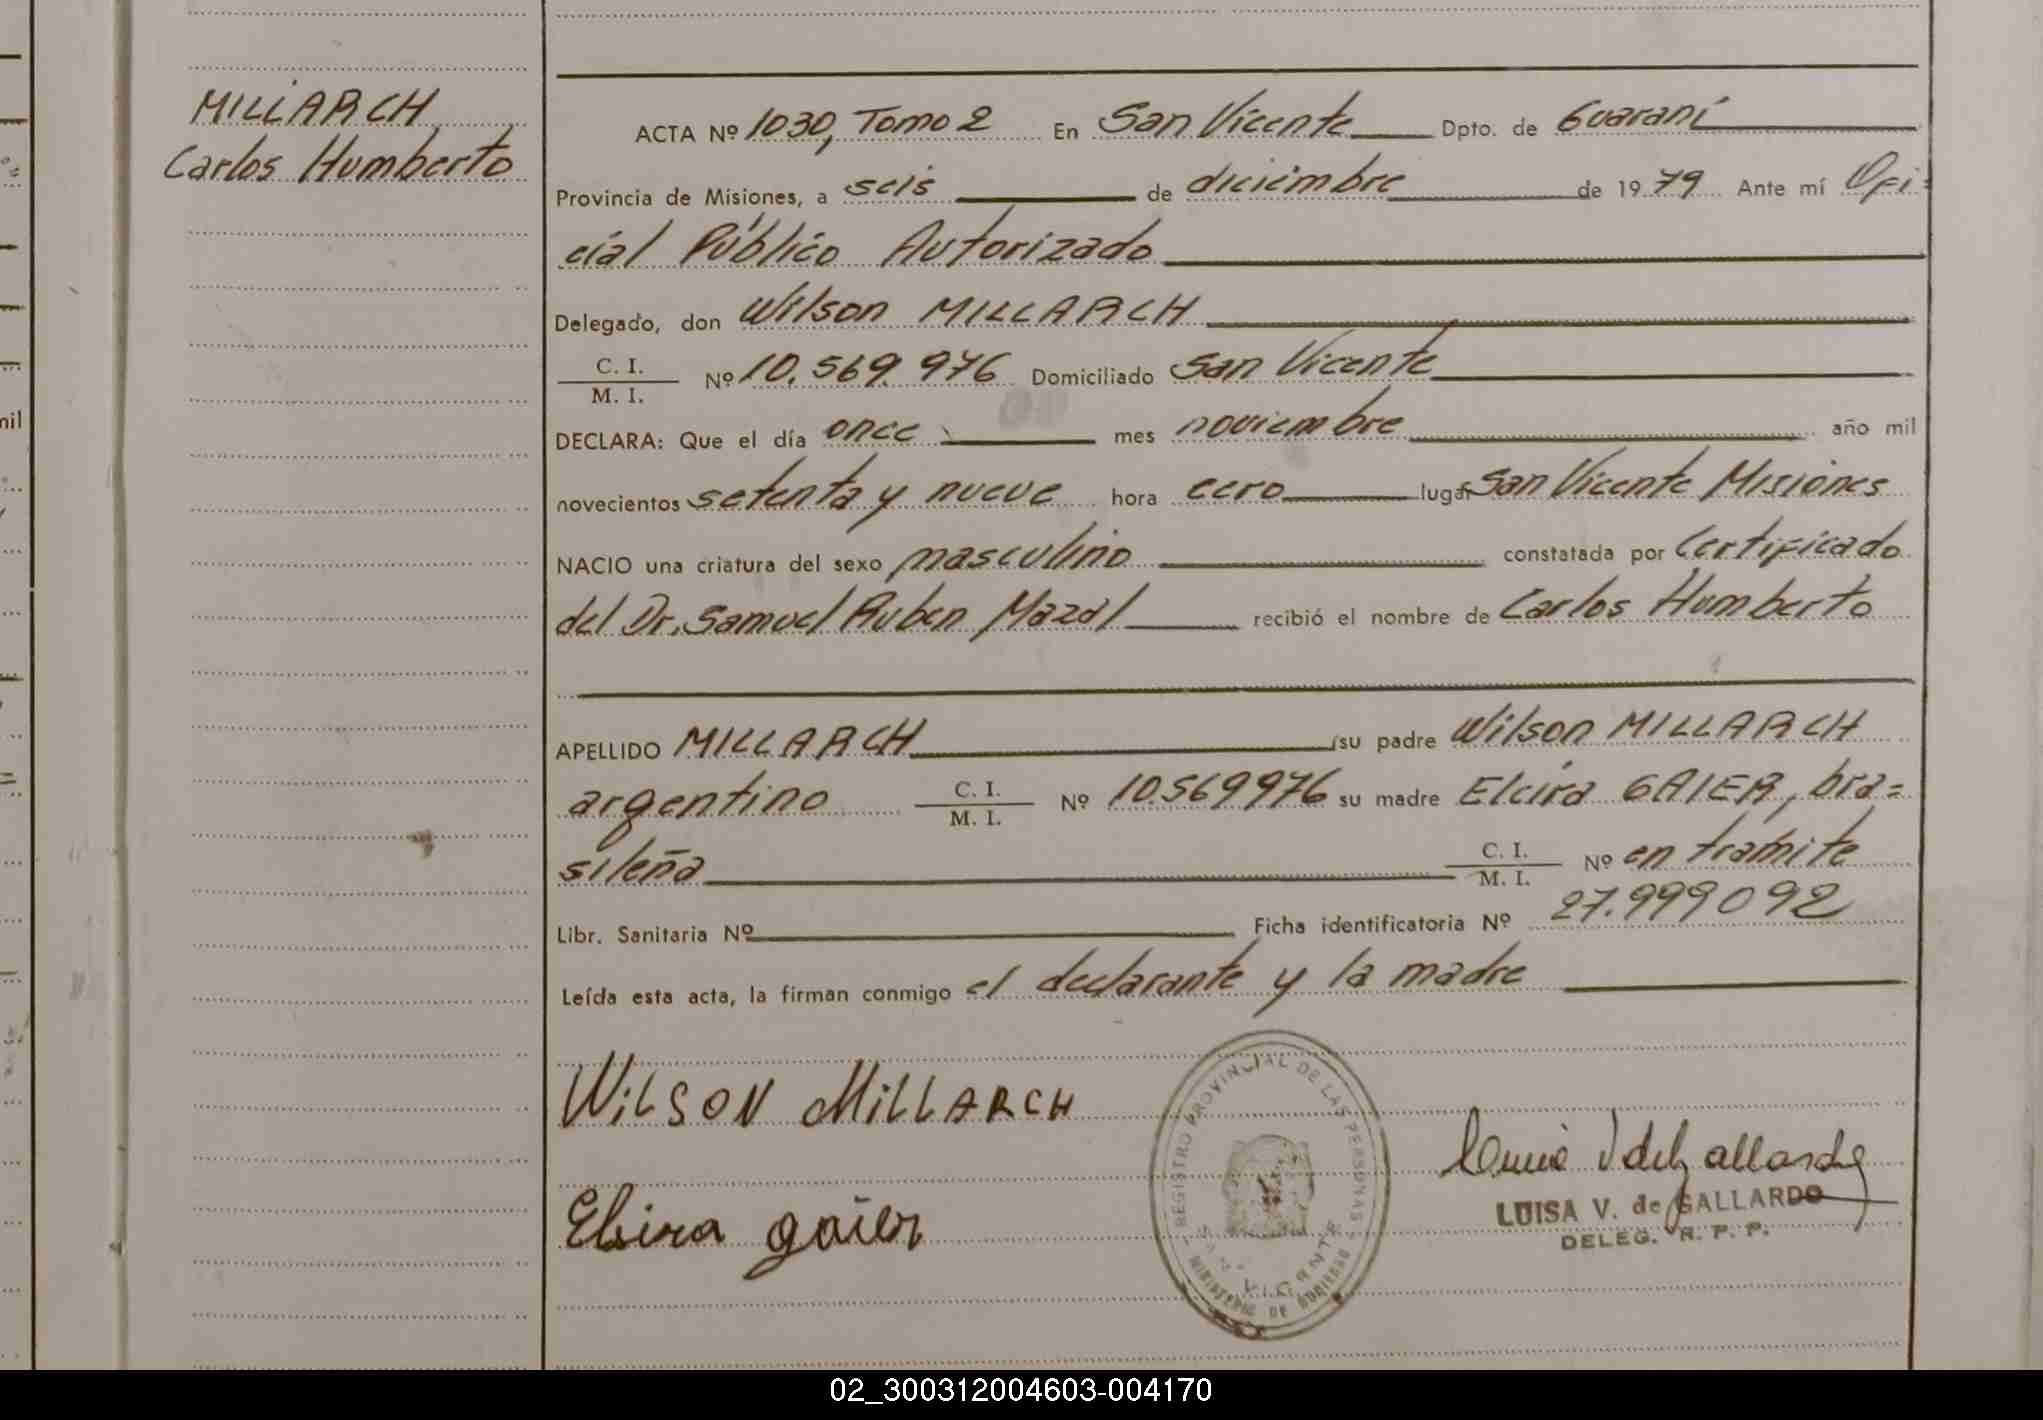 MILLARCH
Carlos Humberto
ACTA Nº 1030, Tomo 2 En San Vicente Dpto. de Guaraní
Provincia de Misiones, a seis de diciembre de 1979 Ante mí Ofi=
cial Público Autorizado
Delegado, don Wilson MILLARCH
C. I.
M. I. Nº 10.569.976 Domiciliado San Vicente
DECLARA: Que el día once mes noviembre año mil
novecientos setenta y nueve hora cero lugar San Vicente Misiones
NACIO una criatura del sexo masculino constatada por Certificado
del Dr. Samuel Ruben Mazal recibió el nombre de Carlos Humberto
APELLIDO MILLARCH su padre Wilson MILLARCH
argentino C. I.
M. I. Nº 10.569976 su madre Elcira GAIER, bra=
sileña C. I.
M. I. Nº en tramite
Libr. Sanitaria Nº Ficha identificatoria Nº 27.999092
Leída esta acta, la firman conmigo el declarante y la madre
WiLSON MiLLARCH
Elsira gaier
REGISTRO PROVINCIAL DE LAS PERSONAS
MINISTERIO DE GOBIERNO
LUISA V. de GALLARDO
DELEG. R. P. P.
mil
02_300312004603-004170